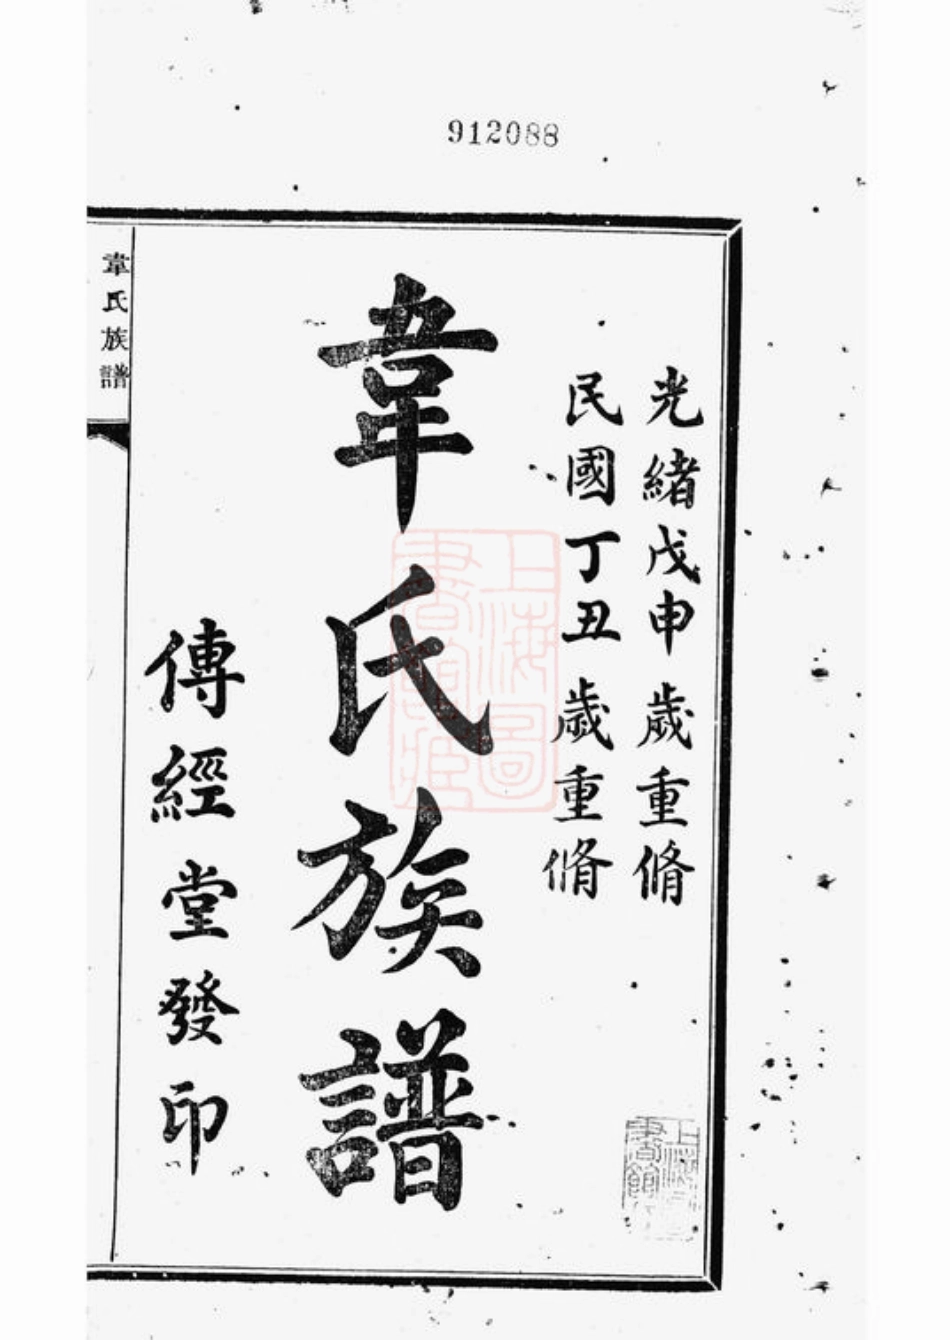 912088
光緒戊申歲重脩
民國丁丑歲重脩
韋氏族譜
傳經堂發印
韋氏族譜
上海圖書館藏